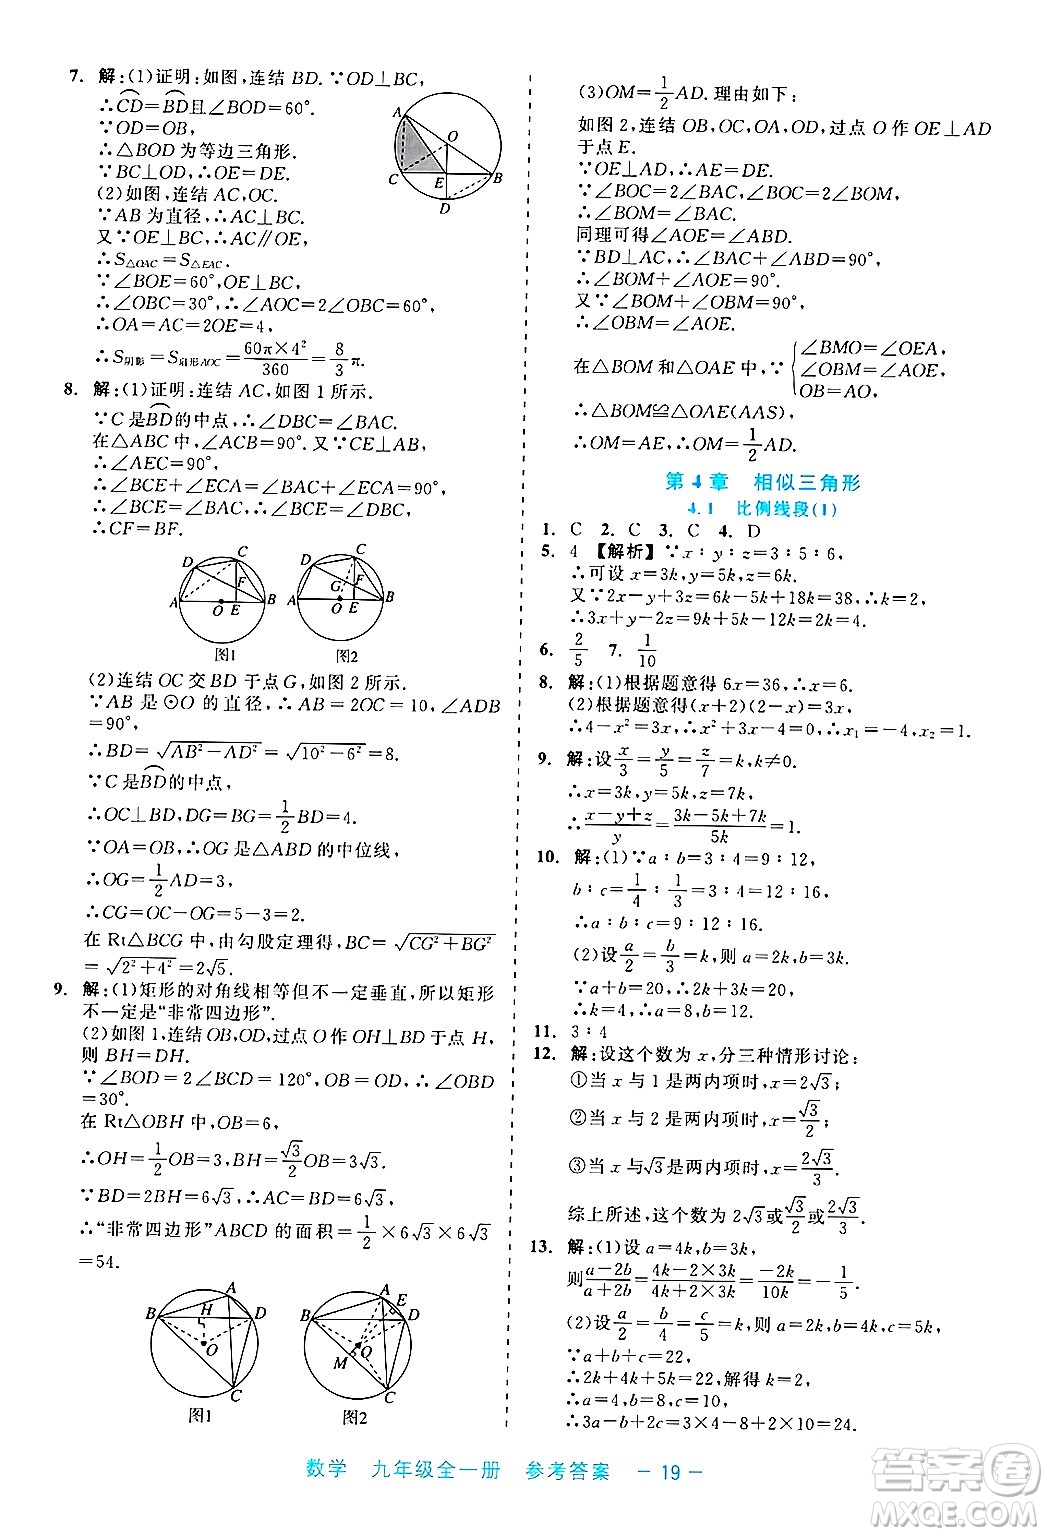 7. 解:(1)证明:如图,连结 BD.∵OD⊥BC,
∴CD=BD且∠BOD=60°.
∵OD=OB,
∴△BOD 为等边三角形.
∵BC⊥OD,∴OE=DE.
(2)如图,连结 AC,OC.
∵AB 为直径,∴AC⊥BC.
又∵OE⊥BC,∴AC∥OE,
∴S△OAC=S△EAC.
∵∠BOE=60°,OE⊥BC,
∴∠OBC=30°,∴∠AOC=2∠OBC=60°,
∴OA=AC=2OE=4,
∴S阴影=S扇形AOC=60π×4²/360=8/3π.
A O C E B D
8. 解:(1)证明:连结 AC,如图 1 所示.
∵C 是BD的中点,∴∠DBC=∠BAC.
在△ABC 中,∠ACB=90°.又∵CE⊥AB,
∴∠AEC=90°.
∴∠BCE+∠ECA=∠BAC+∠ECA=90°,
∴∠BCE=∠BAC,∴∠BCE=∠DBC,
∴CF=BF.
D C F A O E B 图1
D C F G A O E B 图2
(2)连结 OC 交 BD 于点 G,如图 2 所示.
∵AB 是⊙O 的直径,∴AB=2OC=10,∠ADB
=90°,
∴BD=√(AB²-AD²)=√(10²-6²)=8.
∵C 是BD的中点,
∴OC⊥BD,DG=BG=1/2BD=4.
∵OA=OB,∴OG 是△ABD 的中位线,
∴OG=1/2AD=3,
∴CG=OC-OG=5-3=2.
在 Rt△BCG 中,由勾股定理得,BC=√(CG²+BG²)
=√(2²+4²)=2√5.
9. 解:(1)矩形的对角线相等但不一定垂直,所以矩形
不一定是“非常四边形”.
(2)如图 1,连结 OB,OD,过点 O 作 OH⊥BD 于点 H,
则 BH=DH.
∵∠BOD=2∠BCD=120°,OB=OD,∴∠OBD
=30°.
在 Rt△OBH 中,OB=6,
∴OH=1/2OB=3,BH=√3/2OB=3√3.
∵BD=2BH=6√3,∴AC=BD=6√3,
∴“非常四边形”ABCD 的面积=1/2×6√3×6√3
=54.
A B H D O C 图1
A E B D O M C 图2
(3)OM=1/2AD.理由如下:
如图 2,连结 OB,OC,OA,OD,过点 O 作 OE⊥AD
于点 E.
∵OE⊥AD,∴AE=DE.
∵∠BOC=2∠BAC,∠BOC=2∠BOM,
∴∠BOM=∠BAC.
同理可得∠AOE=∠ABD.
∵BD⊥AC,∴∠BAC+∠ABD=90°,
又∵∠BOM+∠OBM=90°,
∴∠OBM=∠AOE.
在△BOM 和△OAE 中,∵{∠BMO=∠OEA,
∠OBM=∠AOE,
OB=AO,
∴△BOM≌△OAE(AAS),
∴OM=AE,∴OM=1/2AD.
第 4 章 相似三角形
4.1 比例线段(1)
1. C 2. C 3. C 4. D
5. 4 【解析】∵x∶y∶z=3∶5∶6,
∴可设 x=3k,y=5k,z=6k.
又∵2x-y+3z=6k-5k+18k=38,∴k=2,
∴3x+y-2z=9k+5k-12k=2k=4.
6. 2/5 7. 1/10
8. 解:(1)根据题意得 6x=36,∴x=6.
(2)根据题意得(x+2)(2-x)=3x,
∴4-x²=3x,x²+3x-4=0,∴x₁=-4,x₂=1.
9. 解:设x/3=y/5=z/7=k,k≠0.
∴x=3k,y=5k,z=7k,
∴(x-y+z)/y=(3k-5k+7k)/5k=1.
10. 解:(1)∵a∶b=3∶4=9∶12,
b∶c=1/4∶1/3=3∶4=12∶16,
∴a∶b∶c=9∶12∶16.
(2)设a/4=b/3=k,则 a=4k,b=3k.
∵a²+b²=(4k)²+(3k)²=10²,
∴k²=4,∴ab=12k²=48.
11. 3∶4
12. 解:设这个数为 x,分三种情形讨论:
①当 x 与 1 是两内项时,x=2√3;
②当 x 与 2 是两内项时,x=√3/2;
③当 x 与√3是两内项时,x=2√3/3.
综上所述,这个数为 2√3或√3/2或2√3/3.
13. 解:(1)设 a=4k,b=3k,
则(a-2b)/(a+2b)=(4k-2×3k)/(4k+2×3k)=-2k/10k=-1/5.
(2)设a/2=b/4=c/5=k,则 a=2k,b=4k,c=5k.
∵a+b+c=22,
∴2k+4k+5k=22,解得 k=2,
∴3a-b+2c=6k-4k+10k=12k=24.
数学 九年级全一册 参考答案 -19-
答案圈
MXQE.COM